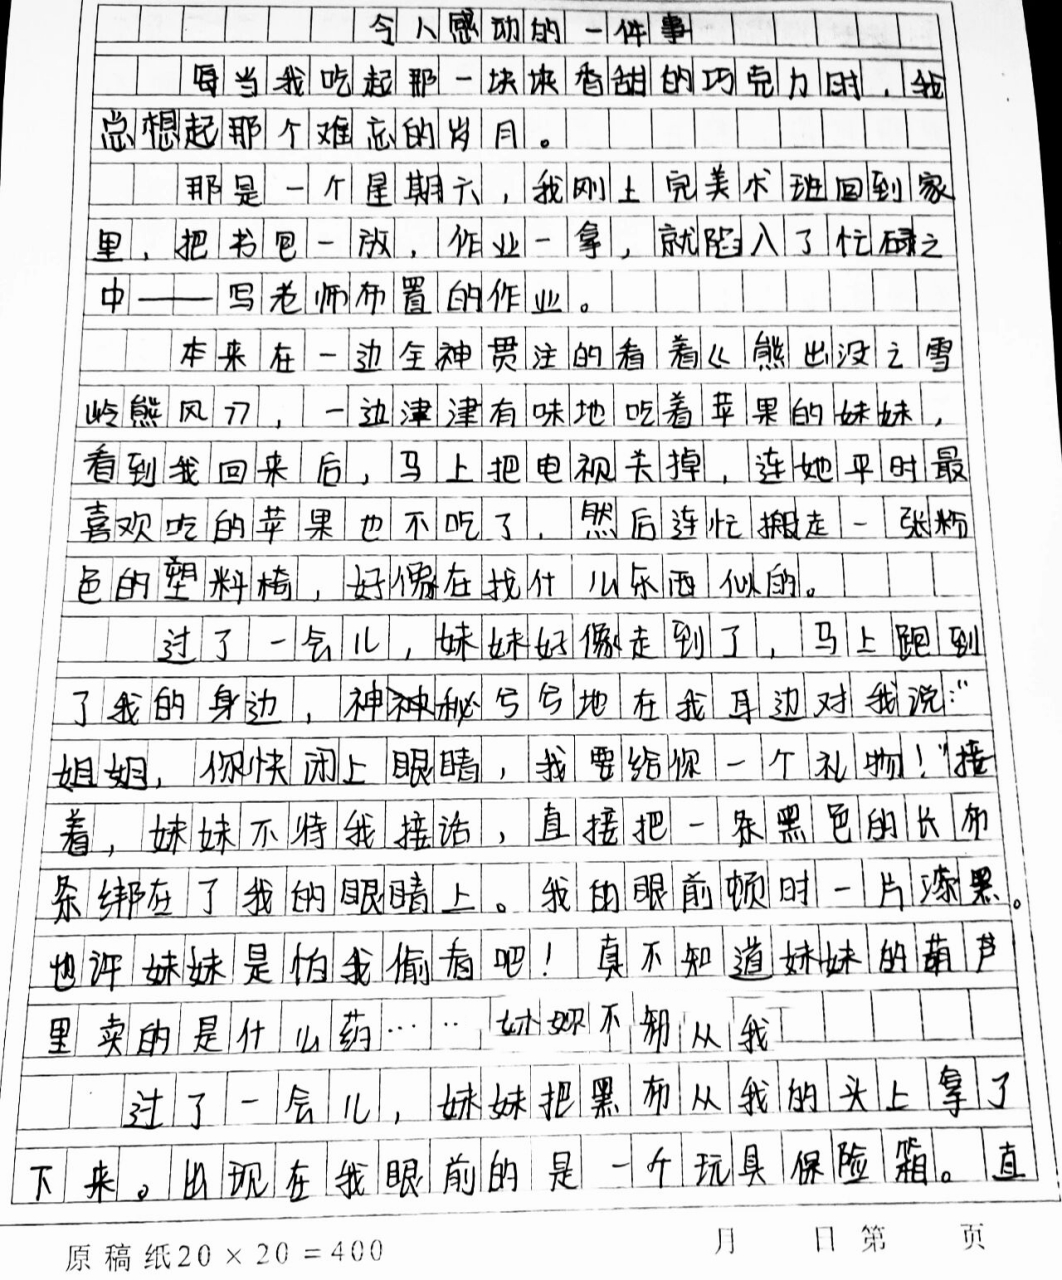 令人感动的一件事
每当我吃起那一块块香甜的巧克力时，我
总想起那个难忘的岁月。
那是一个星期六，我刚上完美术班回到家
里，把书包一放，作业一拿，就陷入了忙碌之
中——写老师布置的作业。
本来在一边全神贯注的看着《熊出没之雪
岭熊风》，一边津津有味地吃着苹果的妹妹，
看到我回来后，马上把电视关掉，连她平时最
喜欢吃的苹果也不吃了，然后连忙搬走一张粉
色的塑料椅，好像在找什么东西似的。
过了一会儿，妹妹好像走到了，马上跑到
了我的身边，神神秘兮兮地在我耳边对我说："
姐姐，你快闭上眼睛，我要给你一个礼物！"接
着，妹妹不待我接话，直接把一条黑色的长布
条绑在了我的眼睛上。我的眼前顿时一片漆黑。
也许妹妹是怕我偷看吧！真不知道妹妹的葫芦
里卖的是什么药…… 妹妹不 从我
过了一会儿，妹妹把黑布从我的头上拿了
下来。出现在我眼前的是一个玩具保险箱。直
原稿纸20×20=400 月 日第 页